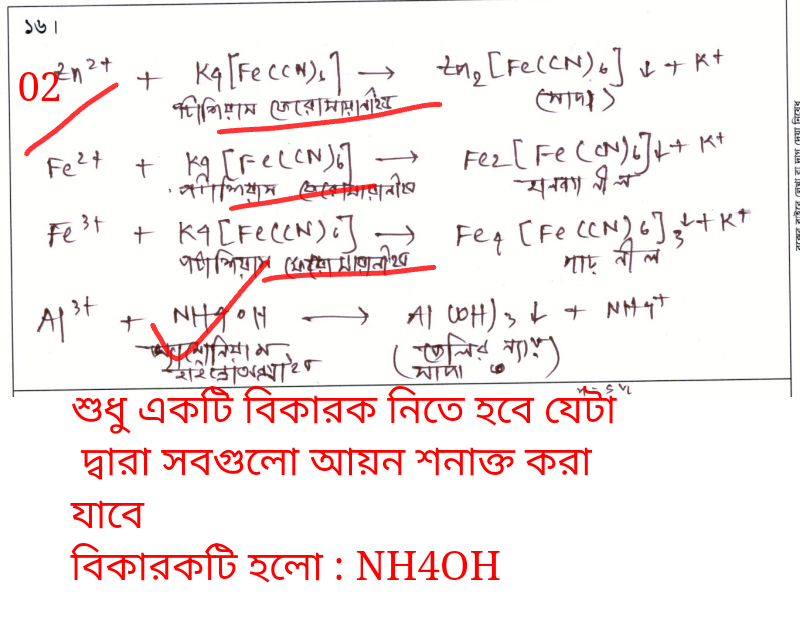 ১৬।
02
Zn²⁺ + K4[Fe(CN)6] → Zn2[Fe(CN)6]↓ + K⁺
পটাশিয়াম ফেরোসায়ানাইড (সাদা)
Fe²⁺ + K4[Fe(CN)6] → Fe2[Fe(CN)6]↓ + K⁺
পটাশিয়াম ফেরোসায়ানাইড নীল
Fe³⁺ + K4[Fe(CN)6] → Fe4[Fe(CN)6]3↓ + K⁺
পটাশিয়াম ফেরোসায়ানাইড গাঢ় নীল
Al³⁺ + NH4OH → Al(OH)3↓ + NH4⁺
অ্যামোনিয়াম (জেলির ন্যায়
হাইড্রোক্সাইড সাদা)
শুধু একটি বিকারক নিতে হবে যেটা
দ্বারা সবগুলো আয়ন শনাক্ত করা
যাবে
বিকারকটি হলো : NH4OH